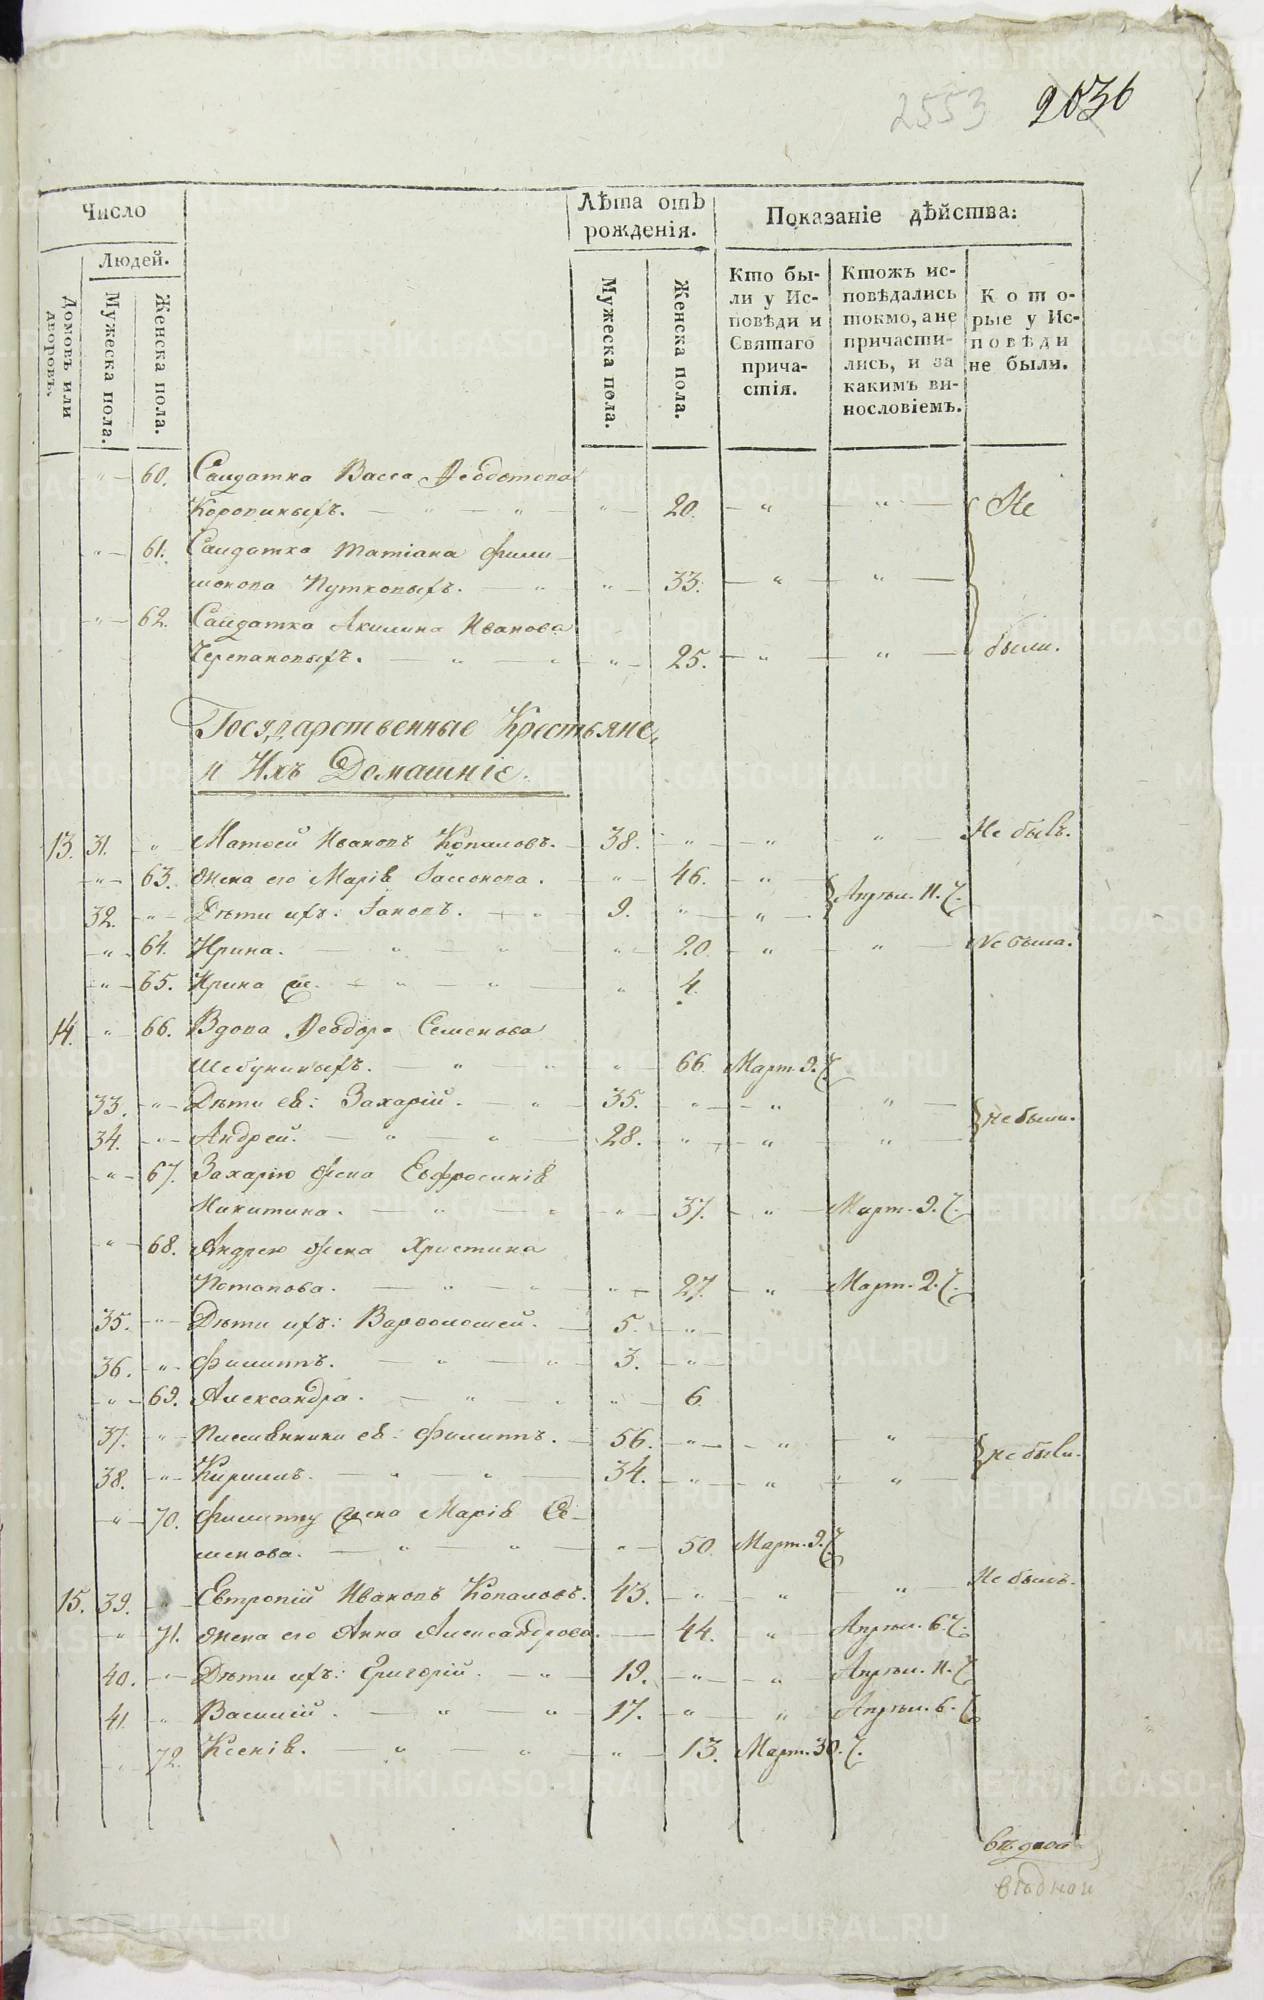 2553 2036
Число
Лѣта отъ рожденія.
Показаніе дѣйства:
Людей.
Домовъ или дворовъ.
Мужеска пола.
Женска пола.
Мужеска пола.
Женска пола.
Кто бы-
ли у Ис-
повѣди и
Святаго
прича-
стія.
Ктожъ ис-
повѣдались
токмо, а не
причасти-
лись, и за
какимъ ви-
нословіемъ.
Кото-
рые у Ис-
повѣди
не были.
" 60. Салдатка Васса Ѳеодотова
Коровиныхъ. " " " 20. " " Не
" 61. Салдатка Татіана Фили-
монова Путковыхъ. " " 33. " "
" 62. Салдатка Акилина Иванова
Черепановыхъ. " " " 25. " " были.
Государственные Крестьяне,
и Ихъ Домашніе.
13. 31. " Матѳей Ивановъ Коваловъ. 38. " " " Не былъ.
" 63. Жена его Марія Іассонова. " 46. "
32. " Дѣти ихъ: Іаковъ. " 9. " " Апрѣл. 11. ч.
" 64. Ирина. " " " 20. " " Не была.
" 65. Ирина " " " 4.
14. " 66. Вдова Ѳеодора Семенова
Шебуниныхъ. " " " 66. Март. 9. ч.
33. " Дѣти ея: Захарій. " 35. " " "
34. " Андрей. " " 28. " " " не были.
" 67. Захарію жена Евфросинія
Никитина. " " " 37. " Март. 9. ч.
" 68. Андрею жена Христина
Потапова. " " " 27. " Март. 2. ч.
35. " Дѣти ихъ: Варѳоломей. 5. "
36. " Филиппъ. " " 3. "
" 69. Александра. " " " 6.
37. " Племянники ея: Филиппъ. 56. " " "
38. " Кириллъ. " " 34. " " " не были.
" 70. Филиппу жена Марія Се-
менова. " " " 50. Март. 9. ч.
15. 39. " Евтропій Ивановъ Коваловъ. 43. " " " Не былъ.
" 71. Жена его Анна Александрова. 44. " Апрѣл. 6. ч.
40. " Дѣти ихъ: Григорій. " 19. " " Апрѣл. 11. ч.
41. " Василій. " " 17. " " Апрѣл. 6. ч.
72. Ксенія. " " " 13. Март. 30. ч.